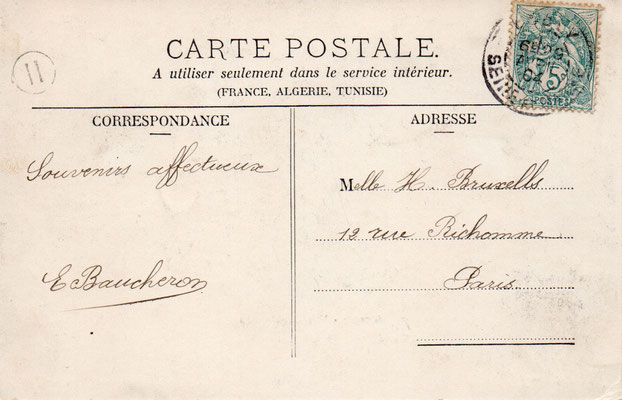 CARTE POSTALE.
A utiliser seulement dans le service intérieur.
(FRANCE, ALGERIE, TUNISIE)
11
5
POSTES
SEINE
CORRESPONDANCE
Souvenirs affectueux
E Baucheron
ADRESSE
Melle H. Bruxells
12 rue Richomme
Paris